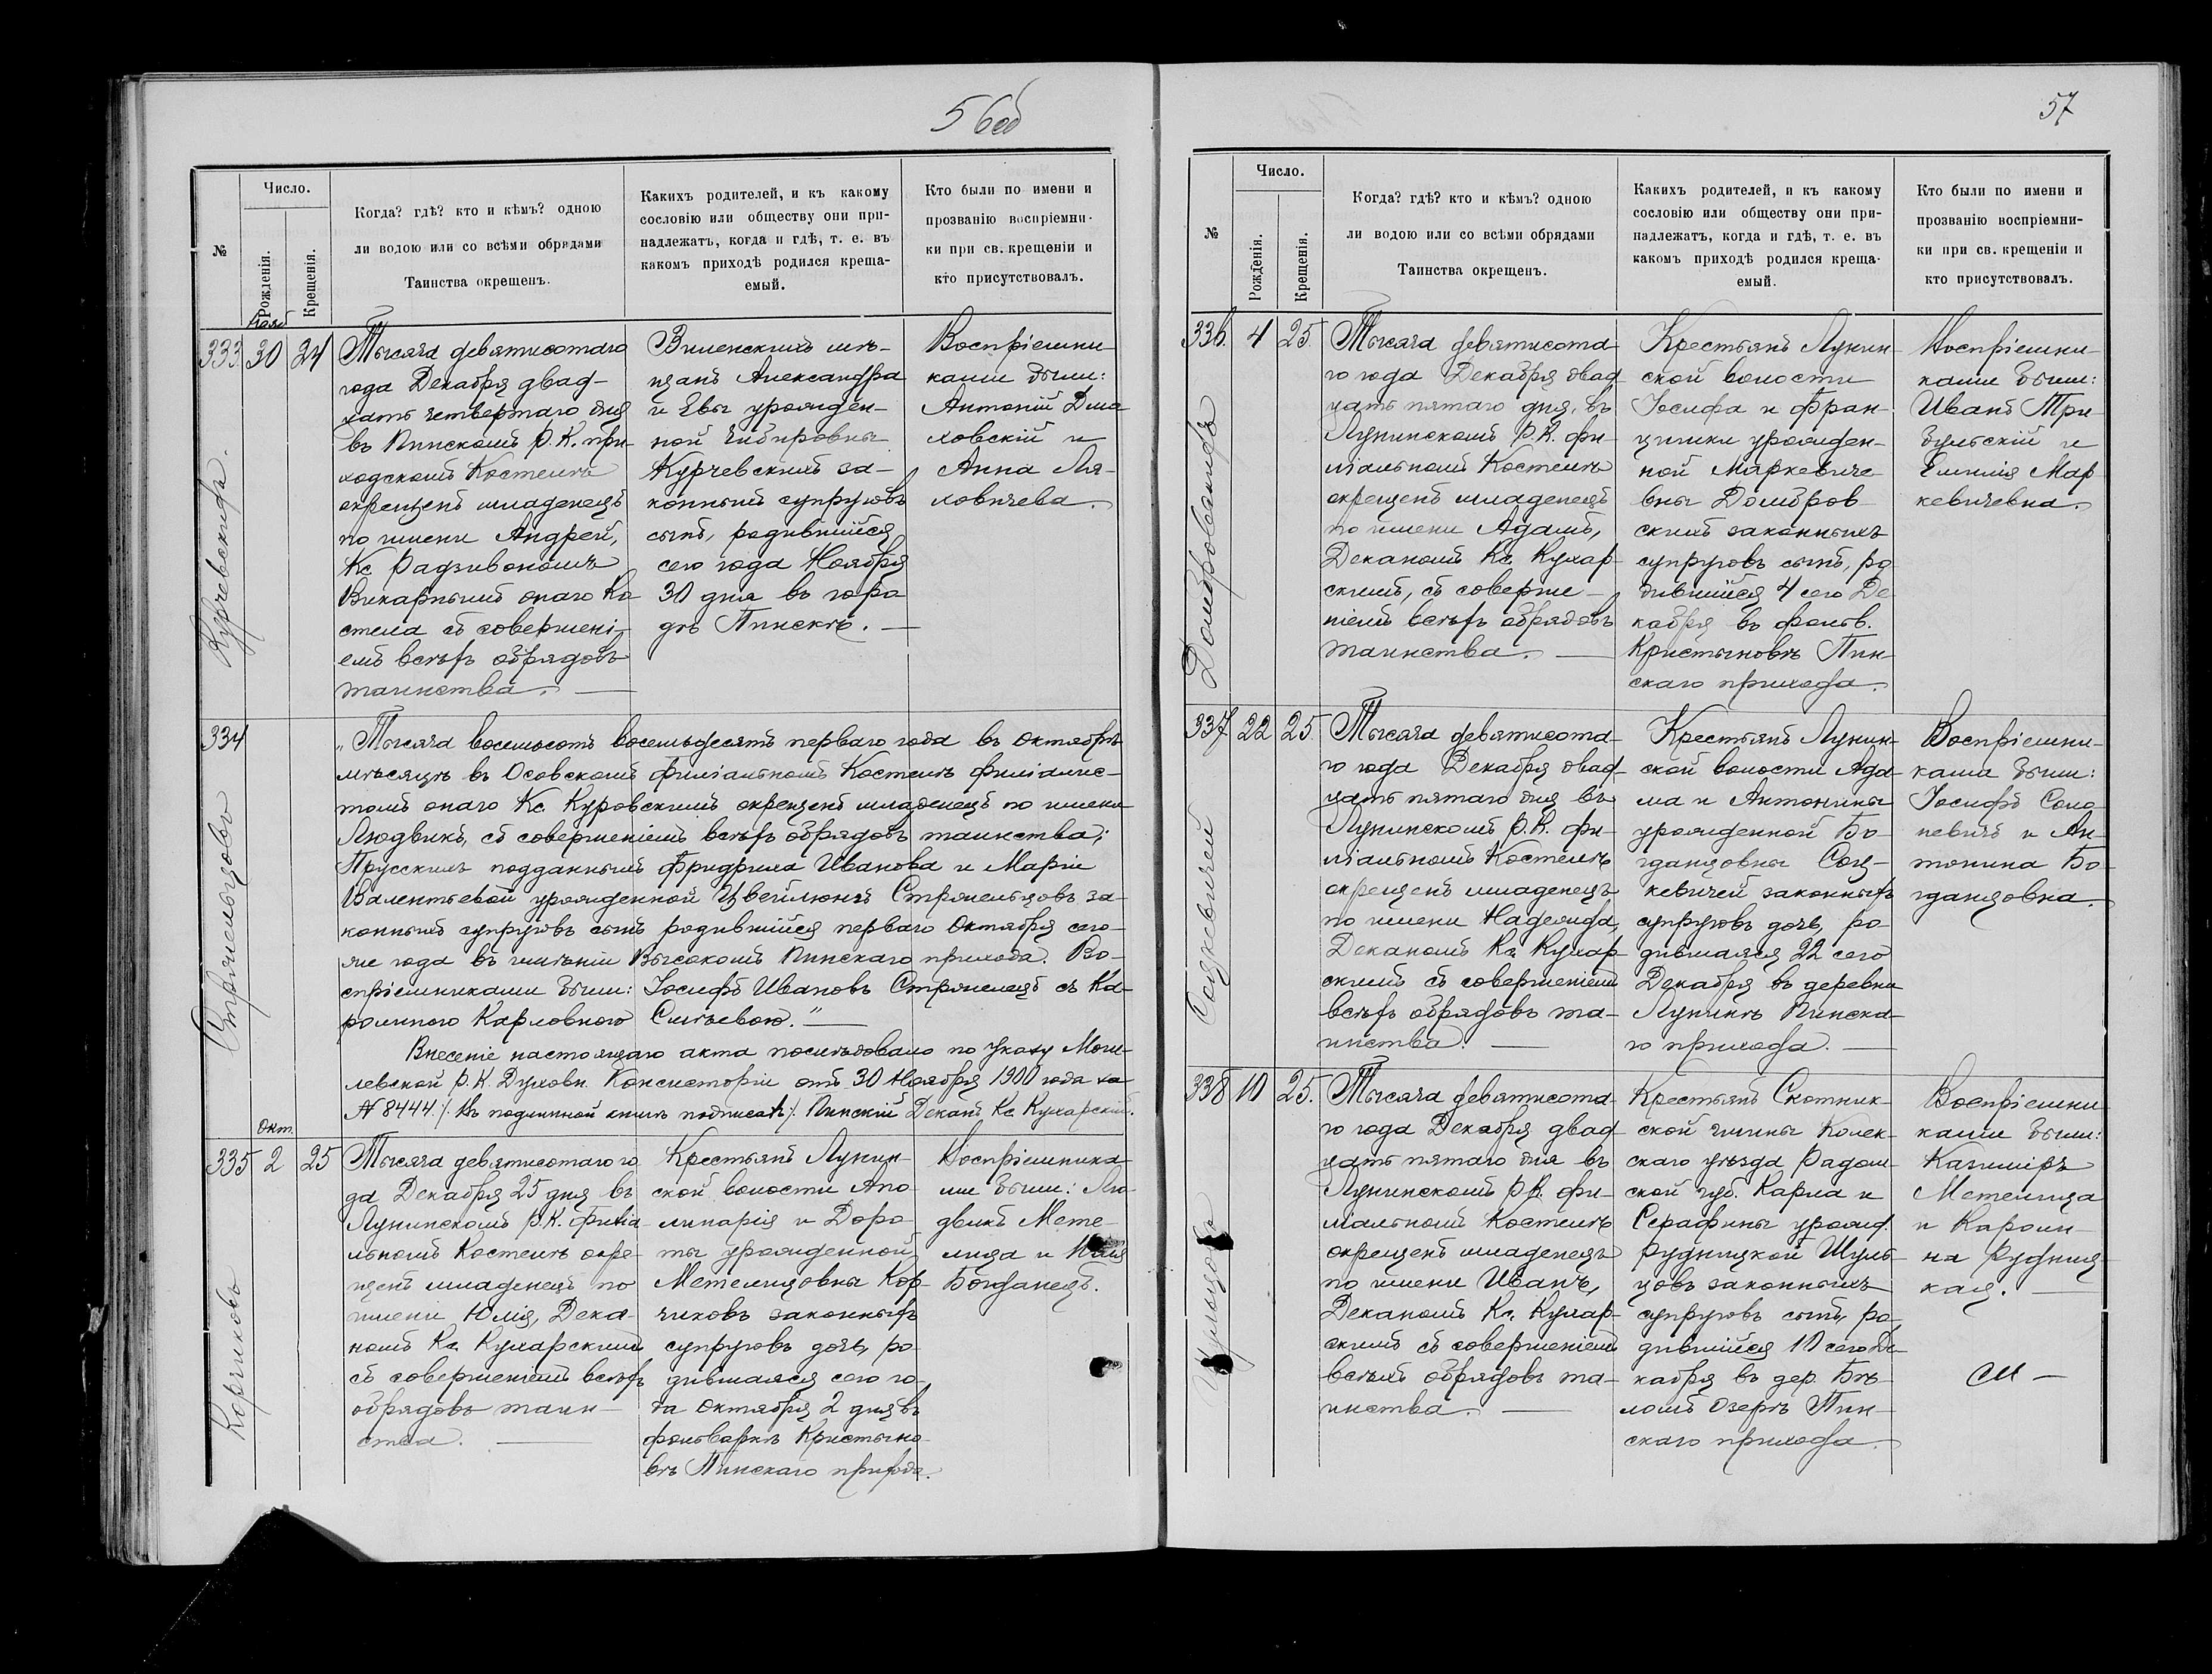 56об
№
Число.
Рожденія.
Крещенія.
Когда? гдѣ? кто и кѣмъ? одною
ли водою или со всѣми обрядами
Таинства окрещенъ.
Какихъ родителей, и къ какому
сословію или обществу они при-
надлежатъ, когда и гдѣ, т. е. въ
какомъ приходѣ родился креща-
емый.
Кто были по имени и
прозванію воспріемни-
ки при св. крещеніи и
кто присутствовалъ.
Нояб
333 30 24
Курчевскихъ.
Тысяча девятисотаго
года Декабря двад-
цать четвертаго дня
въ Пинскомъ Р. К. при-
ходскомъ Костелѣ
окрещенъ младенецъ
по имени Андрей,
Кс. Радзивономъ
Викарнымъ онаго Ко
стела съ совершені-
емъ всѣхъ обрядовъ
таинства. —
Виленскихъ мѣ-
щанъ Александра
и Евы урожден-
ной
Курчевскихъ за-
конныхъ супруговъ
сынъ, родившійся
сего года Ноября
30 дня въ горо
дѣ Пинскѣ. —
Воспріемни
ками были:
Антоній Дма
ховскій и
Анна Ля-
ховичева.
334
Стржельцовъ
„Тысяча восемьсотъ восемьдесятъ перваго года въ Октябрѣ
мѣсяцѣ въ Осовскомъ филіальномъ Костелѣ филіалис-
томъ онаго Кс. Куровскимъ окрещенъ младенецъ по имени
Людвикъ, съ совершеніемъ всѣхъ обрядовъ таинства;
Прусскихъ подданныхъ Фридриха Иванова и Маріи
Валентьевой урожденной Цвейлюнгъ Стржельцовъ за-
конныхъ супруговъ сынъ родившійся перваго Октября сего-
же года въ имѣніи Высокомъ Пинскаго прихода. Во-
спріемниками были: Іосифъ Ивановъ Стржелецъ съ Ка-
ролиною Карловною Смѣевою.“ —
Внесеніе настоящаго акта послѣдовало по указу Моги-
левской Р. К. Духовн. Консисторіи отъ 30 Ноября 1900 года за
№ 8444. /. Въ подлинной книгѣ подписалъ /. Пинскій Деканъ Кс. Кухарскій.
Окт.
335 2 25
Корчиковъ
Тысяча девятисотаго го
да Декабря 25 дня въ
Лунинскомъ Р. К. Филіа
льномъ Костелѣ окре-
щенъ младенецъ по
имени Юлія, Дека-
номъ Кс. Кухарскимъ
съ совершеніемъ всѣхъ
обрядовъ таин-
ства. —
Крестьянъ Лунин-
ской волости Апо-
линарія и Доро-
ты урожденной
Метелицовны Кор-
чиковъ законныхъ
супруговъ дочь, ро-
дившаяся сего го-
да Октября 2 дня въ
фольваркѣ Кристыно-
вѣ Пинскаго прихода.
Воспріемника-
ми были: Лю-
двикъ Мете-
лица и
Богданецъ.
57
№
Число.
Рожденія.
Крещенія.
Когда? гдѣ? кто и кѣмъ? одною
ли водою или со всѣми обрядами
Таинства окрещенъ.
Какихъ родителей, и къ какому
сословію или обществу они при-
надлежатъ, когда и гдѣ, т. е. въ
какомъ приходѣ родился креща-
емый.
Кто были по имени и
прозванію воспріемни-
ки при св. крещеніи и
кто присутствовалъ.
336. 4 25.
Домбровскихъ
Тысяча девятисота-
го года Декабря двад
цать пятаго дня, въ
Лунинскомъ Р. К. фи-
ліальномъ Костелѣ
окрещенъ младенецъ
по имени Адамъ,
Деканомъ Кс. Кухар-
скимъ, съ соверше-
ніемъ всѣхъ обрядовъ
таинства. —
Крестьянъ Лунин-
ской волости
Іосифа и Фран-
цишки урожден-
ной Маркевиче-
вны Домбров-
скихъ законныхъ
супруговъ сынъ, ро
дившійся 4 сего Де
кабря въ фольв.
Кристыновѣ Пин-
скаго прихода.
Воспріемни-
ками были:
Иванъ Три-
бульскій и
Емилія Мар
кевичевна.
337 22 25.
Сацкевичей
Тысяча девятисота-
го года Декабря двад-
цать пятаго дня въ
Лунинскомъ Р. К. фи-
ліальномъ Костелѣ
окрещенъ младенецъ
по имени Надежда,
Деканомъ Кс. Кухар-
скимъ съ совершеніемъ
всѣхъ обрядовъ та-
инства. —
Крестьянъ Лунин-
ской волости Ада-
ма и Антонины
урожденной Бо-
гданцовны Сац-
кевичей законныхъ
супруговъ дочь, ро-
дившаяся 22 сего
Декабря въ деревни
Лунинѣ Пинска-
го прихода. —
Воспріемни-
ками были:
Іосифъ Соло-
невичъ и Ан-
тонина Бо-
гданцовна.
338 10 25.
Шульцовъ
Тысяча девятисота-
го года Декабря двад
цать пятаго дня въ
Лунинскомъ Р. К. фи-
ліальномъ Костелѣ
окрещенъ младенецъ
по имени Иванъ,
Деканомъ Кс. Кухар-
скимъ съ совершеніемъ
всѣхъ обрядовъ та-
инства. —
Крестьянъ Скотник-
ской гмины Колек-
скаго уѣзда Радом-
ской губ. Карла и
Серафины урожд.
Рудницкой Шуль-
цовъ законныхъ
супруговъ сынъ, ро-
дившійся 10 сего Де-
кабря въ дер. Бѣ-
ломъ Озерѣ Пин-
скаго прихода.
Воспріемни
ками были:
Казиміръ
Метелица
и Кароли-
на Рудниц
кая. —